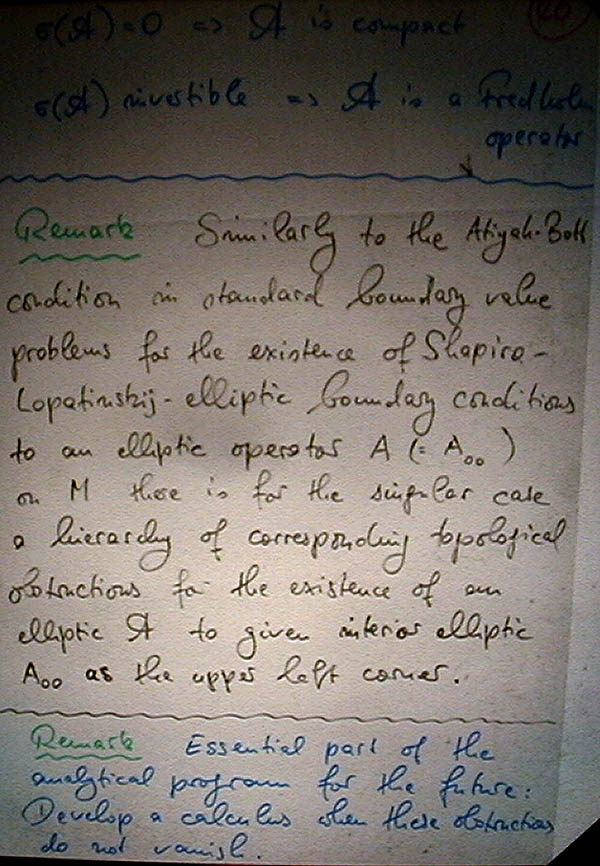 20
σ(𝒜) = 0 => 𝒜 is compact
σ(𝒜) invertible => 𝒜 is a Fredholm
operator
Remark Similarly to the Atiyah-Bott
condition in standard boundary value
problems for the existence of Shapiro-
Lopatinskij-elliptic boundary conditions
to an elliptic operator A (= A₀₀)
on M there is for the singular case
a hierarchy of corresponding topological
obstructions for the existence of an
elliptic 𝒜 to given interior elliptic
A₀₀ as the upper left corner.
Remark Essential part of the
analytical program for the future:
Develop a calculus when these obstructions
do not vanish.